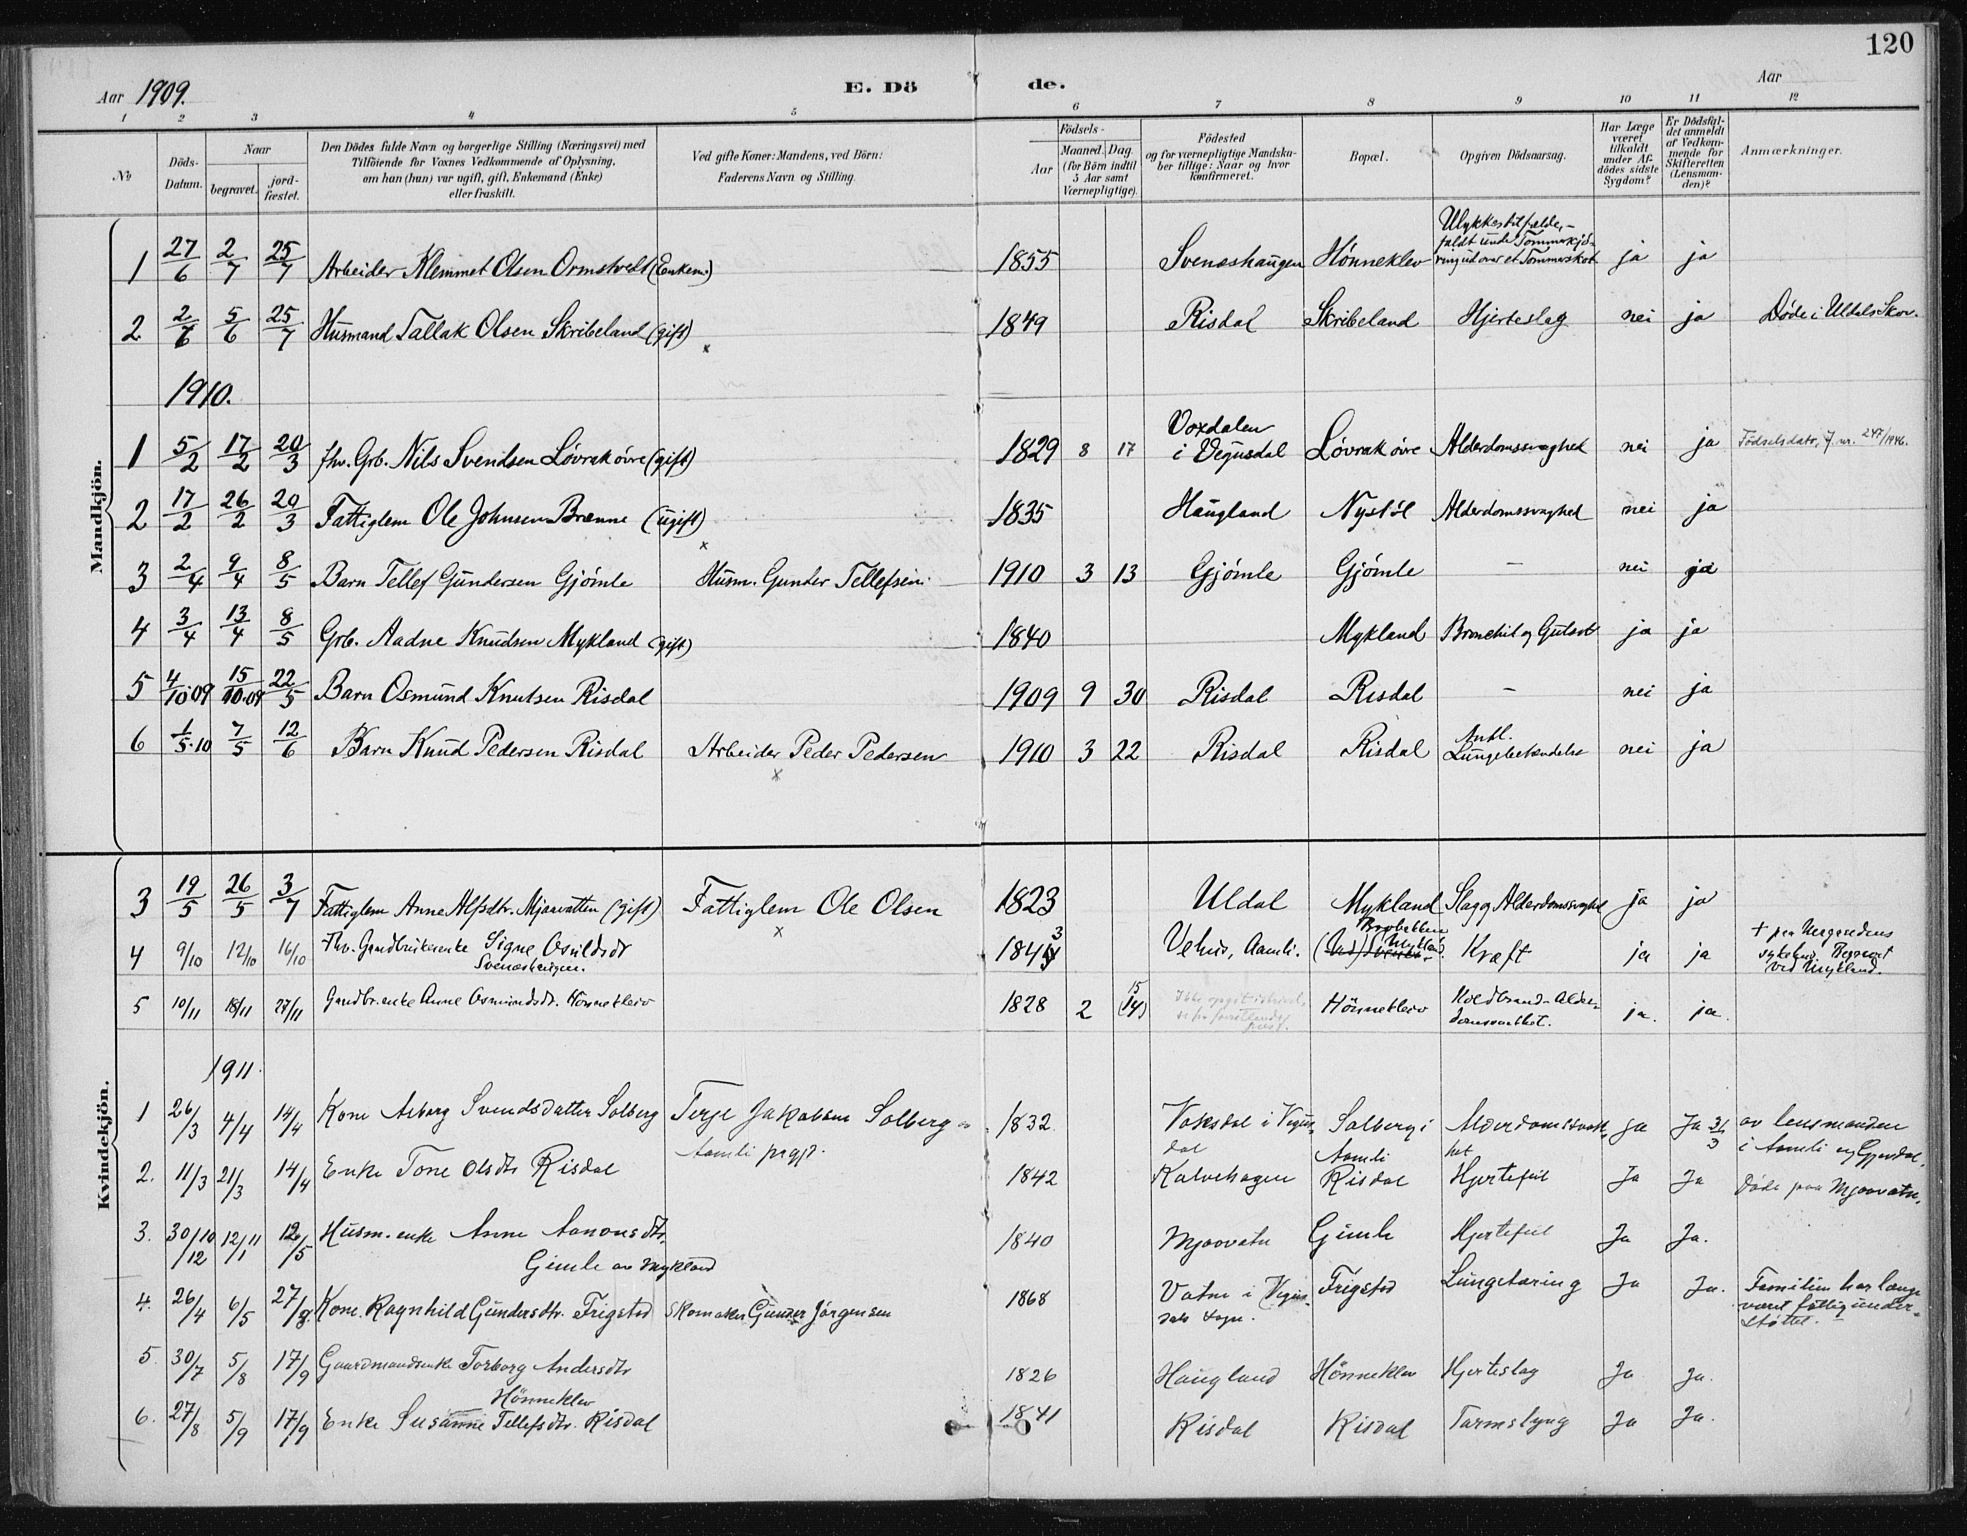 120
Aar 1909.
E. Dö de.
Aar
1 2 3 4 5 6 7 8 9 10 11 12
No
Döds-Datum.
Naar
begravet.
jord-fæstet.
Den Dödes fulde Navn og borgerlige Stilling (Næringsvei) med
Tilföiende for Voxnes Vedkommende af Oplysning,
om han (hun) var ugift, gift, Enkemand (Enke)
eller fraskilt.
Ved gifte Koner: Mandens, ved Börn:
Faderens Navn og Stilling.
Födsels-
Aar
Maaned. Dag.
(for Börn indtil
5 Aar samt
Værnepligtige).
Födested
og for værnepligtige Mandska-
ber tillige: Naar og hvor
konfirmeret.
Bopæl.
Opgiven Dödsaarsag.
Har Læge
været
tilkaldt
under Af-
dödes sidste
Sygdom?
Er Dödsfal-
det anmeldt
af Vedkom-
mende for
Skifteretten
(Lensman-
den)?
Anmærkninger.
Mandkjön.
1 27/6 2/7 25/7 Arbeider Klemmet Olsen Ormstvedt (Enkem.) 1855 Svenæshaugen Hønneklev Ulykkestilfælde,- faldt unde Tømmerkjö- ring ud over et Tømmerskot ja ja
2 2/6 5/6 25/7 Husmand Tallak Olsen Skribeland (gift) x 1849 Risdal Skribeland Hjerteslag nei ja Døde i Uldals Skov.
1910.
1 5/2 17/2 20/3 fhv. Grb. Nils Svendsen Løvrak øvre (gift) 1829 8 17 Voxdalen i Vegusdal Løvrak øvre Alderdomssvaghed nei ja Fødselsdato, J. nr. 247/1946.
2 17/2 26/2 20/3 Fattiglem Ole Johnsen Brænne (ugift) x 1835 Haugland Nystöl Alderdomssvaghed nei ja
3 2/4 9/4 8/5 Barn Tellef Gundersen Gjømle Husm. Gunder Tellefsen. 1910 3 13 Gjømle Gjømle - nei ja
4 3/4 13/4 8/5 Grb. Aadne Knudsen Mykland (gift) 1840 Mykland Bronchit og Gulsot ja ja
5 4/10-09 15/10.09 22/5 Barn Osmund Knutsen Risdal 1909 9 30 Risdal Risdal - nei ja
6 1/5.10 7/5 12/6 Barn Knud Pedersen Risdal Arbeider Peder Pedersen x 1910 3 22 Risdal Risdal Antl. Lungebetændelse nei ja
Kvindekjön.
3 19/5 26/5 3/7 Fattiglem Anne Alfsdtr. Mjaavatten (gift) Fattiglem Ole Olsen x 1823 Uldal Mykland Slag og Alderdomssvaghed ja ja
4 9/10 12/10 16/10 Fhv. Gaardbrukerenke Signe Osuldsdt Svenæshaugen. 1843 Vehus, Aamli. Mykland Kræft ja ja + paa Neegaardens sykehus. Begravet ved Mykland.
5 10/11 18/11 27/11 Gaardbr.enke Anne Osmundsdt. Hönneklev 1828 2 15 (14) Hönneklev Koldbrand-Alder- domssvakhet. ja. ja.
1911.
1 26/3 4/4 14/4 Kone Asborg Svendsdatter Solberg Terje Jakobsen Solberg Aamli prgjd. 1832 Voksdal i Vegus- dal Solberg i Aamli Alderdomssvak- het ja Ja 31/3 av lensmanden i Aamli og Gjøvdal.
2. 11/3 21/3 14/4 Enke Tone Olsdtr Risdal 1842 Kalvehagen Risdal Hjertefeil Ja Ja Døde paa Mjaavatn.
3. 30/10 /12 12/11 /1 12/5 Husm.enke Anne Aanonsdtr. Gimle av Mykland 1840 Mjaavatn Gimle Hjertefeil Ja Ja.
4. 26/4 6/5 27/8. Kone. Ragnhild Gundersdtr. Frigstad Skomaker Gunder Jörgensen 1868 Vatne i Vegus- dals sogn. Frigstad Lungetæring Ja Ja. Familien har længe været fattigunder- støttet.
5. 30/7 5/8 17/9 Gaardmandsenke Torborg Andersdtr Hönneklev 1826 Haugland Hönneklev Hjerteslag Ja Ja.
6. 27/8 5/9 17/9 Enke Susanne Tellefsdtr. Risdal 1841 Risdal Risdal Tarmslyng Ja Ja.